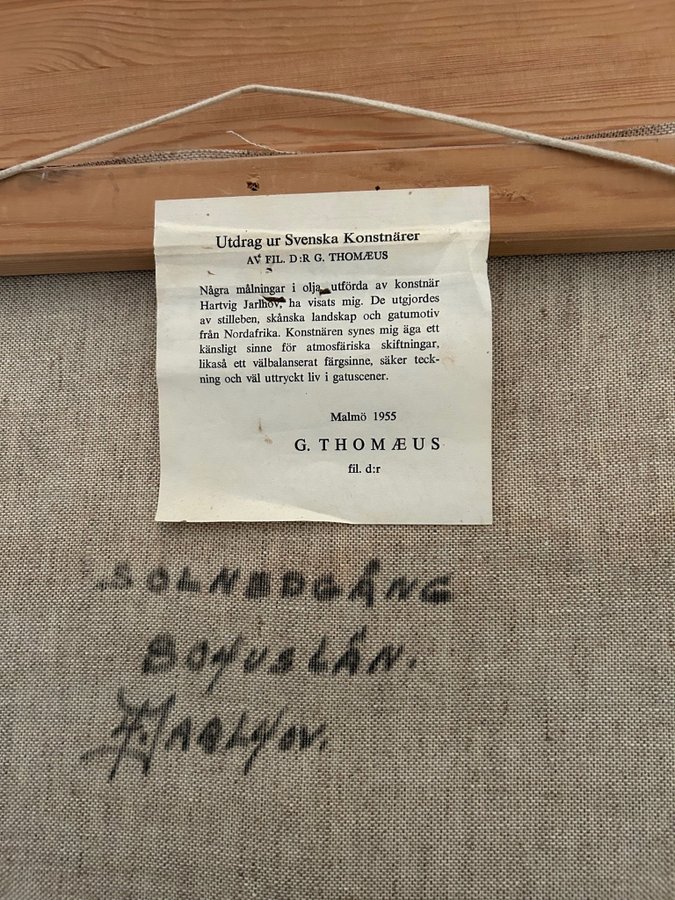 Utdrag ur Svenska Konstnärer
AV FIL. D:R G. THOMÆUS
Några målningar i olja utförda av konstnär
Hartvig Jarlhov, ha visats mig. De utgjordes
av stilleben, skånska landskap och gatumotiv
från Nordafrika. Konstnären synes mig äga ett
känsligt sinne för atmosfäriska skiftningar,
likaså ett välbalanserat färgsinne, säker teck-
ning och väl uttryckt liv i gatuscener.
Malmö 1955
G. THOMÆUS
fil. d:r
SOLNEDGÅNG
BOHUSLÄN.
H. JARLHOV.